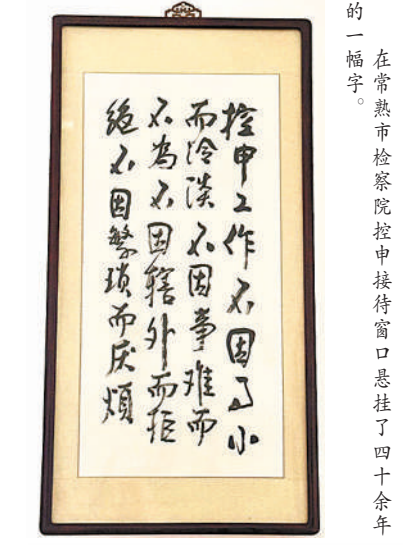 在常熟市检察院控申接待窗口悬挂了四十余年
的一幅字。
控申工作不因事小
而冷淡不因事难而
不为不因辖外而拒
绝不因繁琐而厌烦